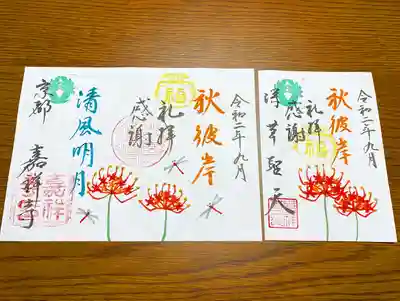 令和二年九月
秋彼岸
福
礼拝
感謝
清風明月
京都 嘉祥寺
嘉祥
令和二年九月
秋彼岸
礼拝
感謝